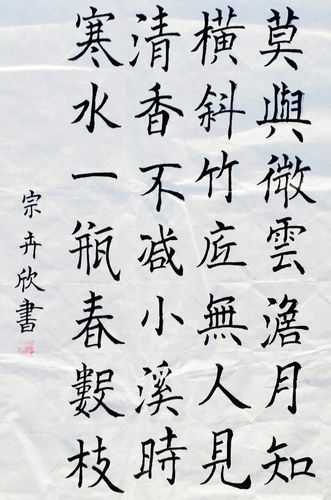 寒水一瓶春數枝
清香不减小溪時
橫斜竹底無人見
莫與微雲澹月知
宗卉欣書